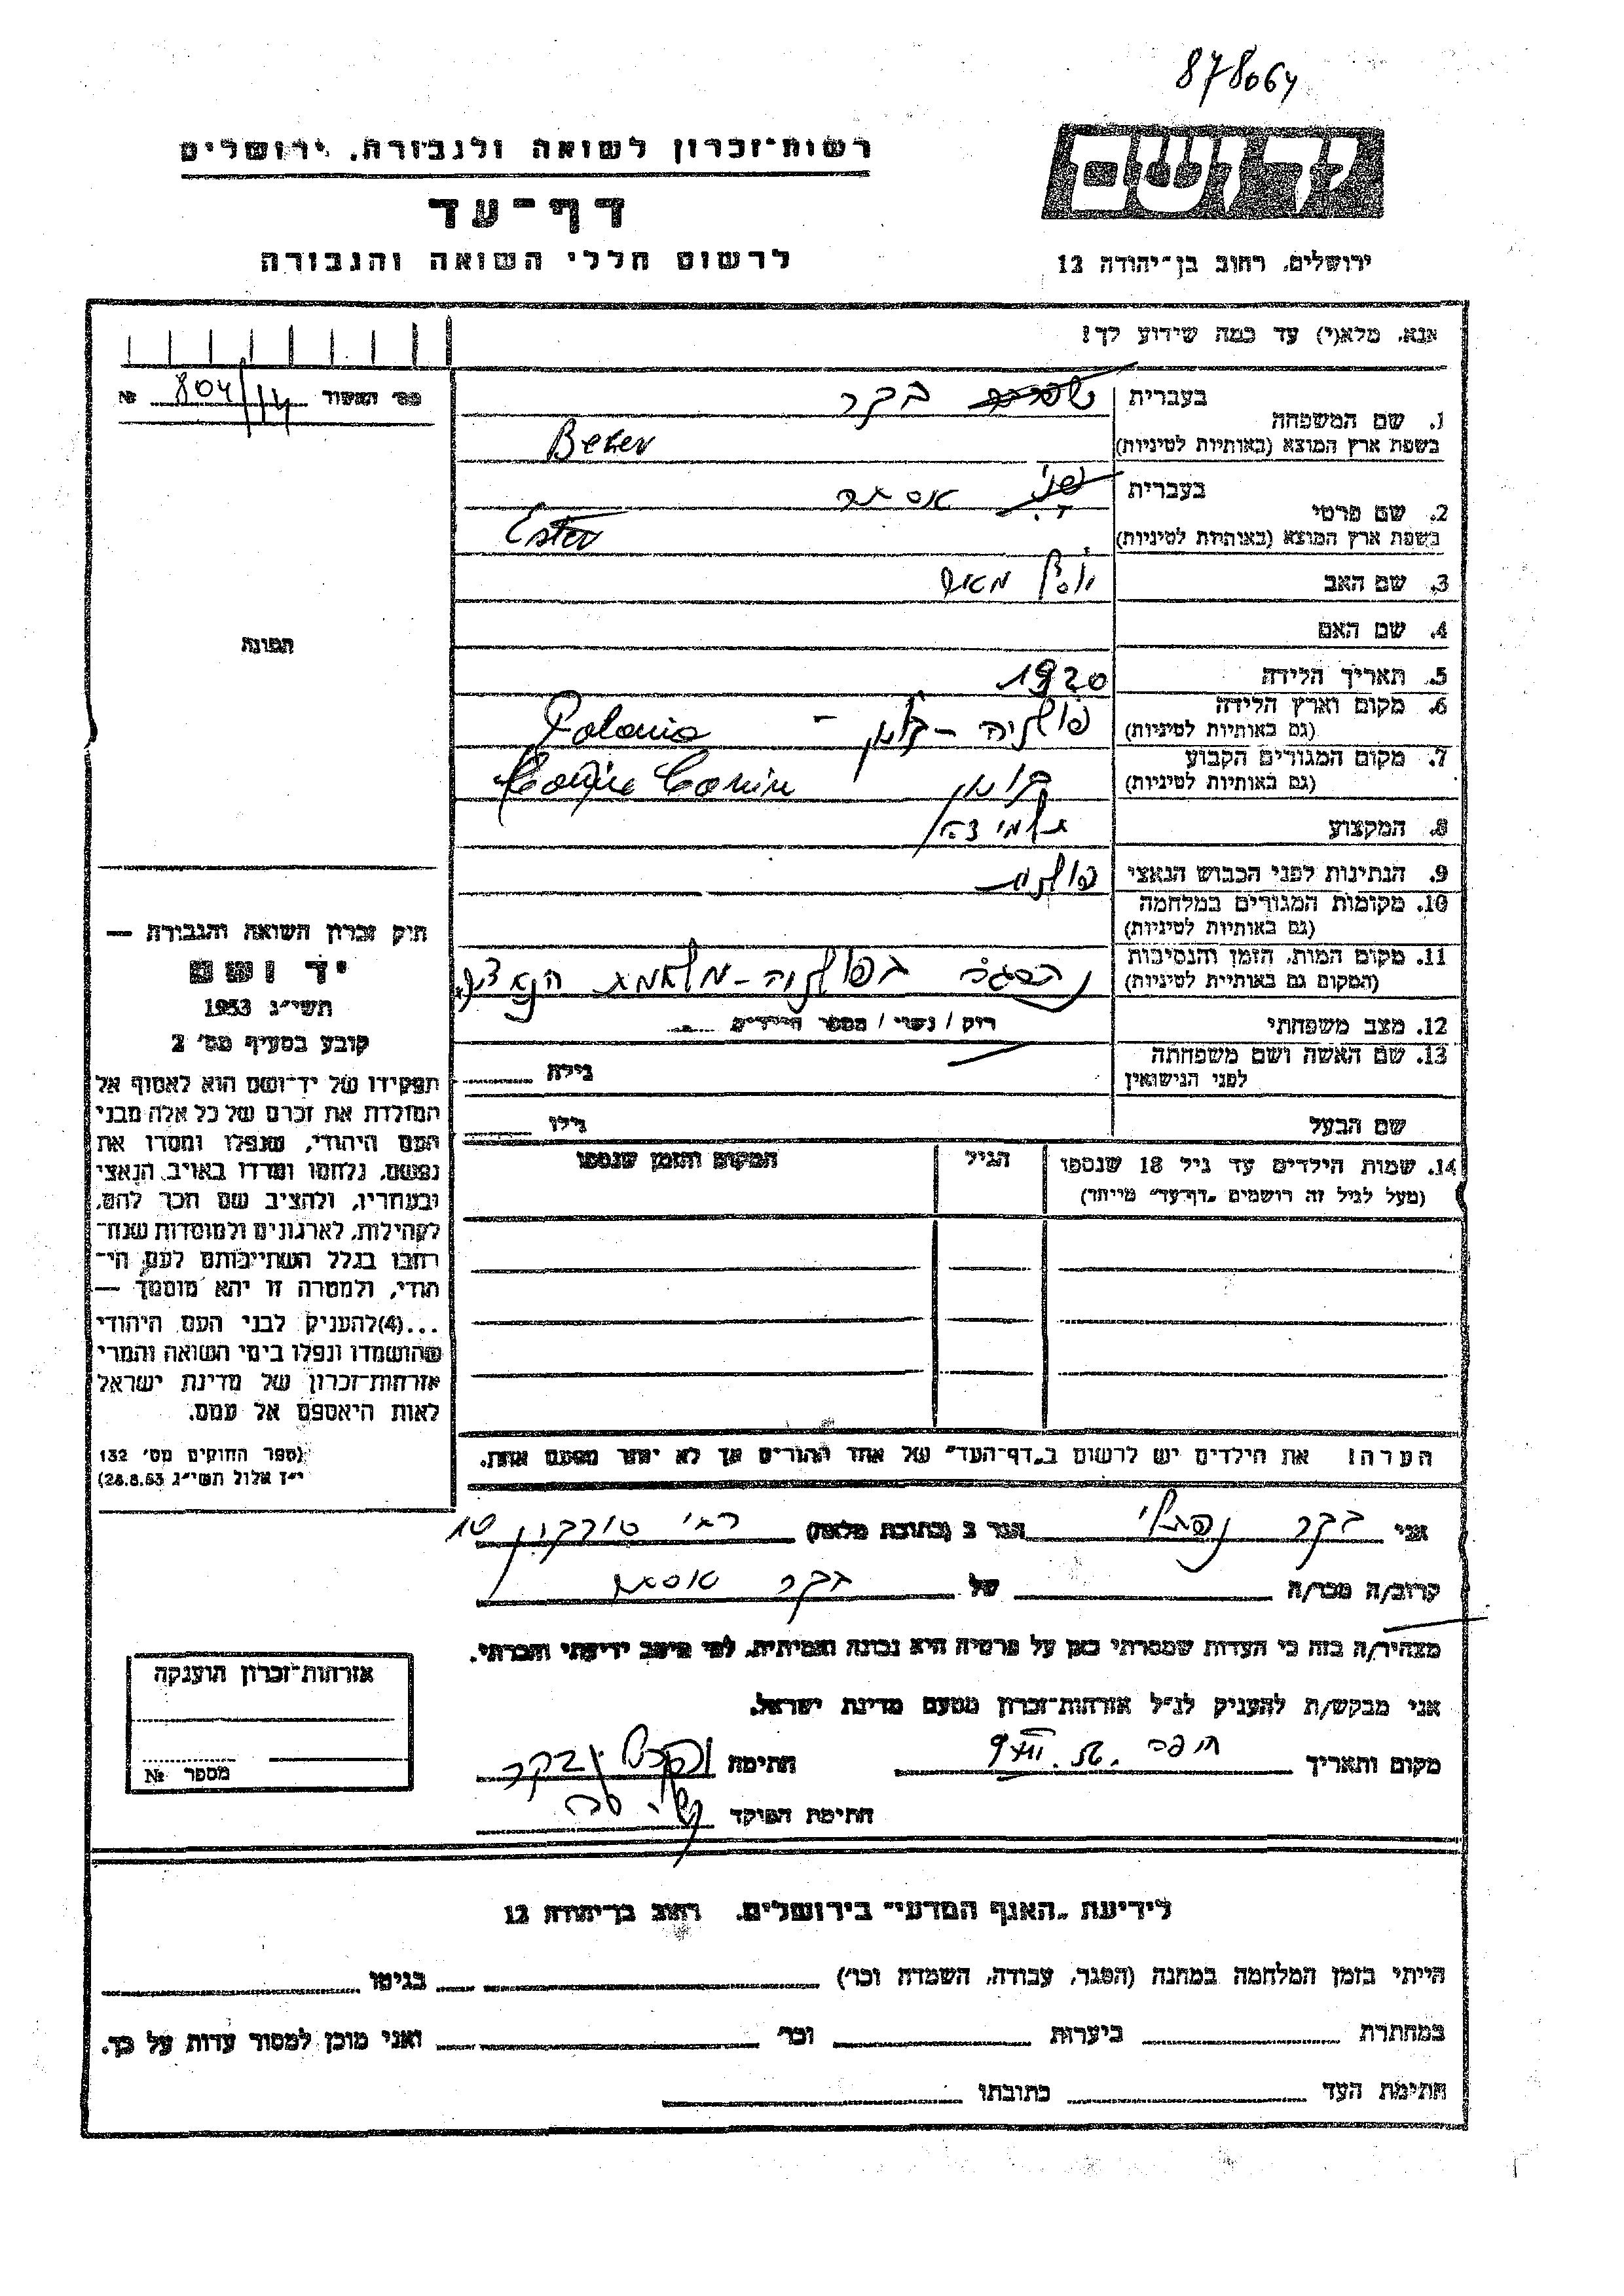 878064
רשות־זכרון לשואה ולגבורה, ירושלים
דף־עד
לרשום חללי השואה והגבורה
יד ושם
ירושלים, רחוב בן־יהודה 12
אנא, מלא(י) עד כמה שידוע לך!
מס׳ האשור 804/14 №
1. שם המשפחה
בעברית בקר
בשפת ארץ המוצא (באותיות לטיניות) Beker
2. שם פרטי
בעברית אסתר
בשפת ארץ המוצא (באותיות לטיניות) Ester
3. שם האב יוסף מאיר
4. שם האם
5. תאריך הלידה 1920
6. מקום וארץ הלידה
(גם באותיות לטיניות) פולניה - Polania
7. מקום המגורים הקבוע
(גם באותיות לטיניות)
8. המקצוע תלמידה
9. הנתינות לפני הכבוש הנאצי פולנית
10. מקומות המגורים במלחמה
(גם באותיות לטיניות)
11. מקום המות, הזמן והנסיבות
(המקום גם באותיות לטיניות) בפולניה - מלחמת
12. מצב משפחתי רווק / נשוי / מספר הילדים
13. שם האשה ושם משפחתה
לפני הנישואין גילה
שם הבעל גילו
14. שמות הילדים עד גיל 18 שנספו
(מעל לגיל זה רושמים „דף־עד" מיוחד)
הגיל
המקום והזמן שנספו
הערה! את הילדים יש לרשום ב„דף־העד" של אחד ההורים אך לא יותר מפעם אחת.
התמונה
חוק זכרון השואה והגבורה —
יד ושם
תשי״ג 1953
קובע בסעיף מס׳ 2
תפקידו של יד־ושם הוא לאסוף אל
המולדת את זכרם של כל אלה מבני
העם היהודי, שנפלו ומסרו את
נפשם, נלחמו ומרדו באויב הנאצי
ובעוזריו, ולהציב שם וזכר להם,
לקהילות, לארגונים ולמוסדות שנח־
רבו בגלל השתייכותם לעם הי־
הודי, ולמטרה זו יהא מוסמך —
...(4)להעניק לבני העם היהודי
שהושמדו ונפלו בימי השואה והמרי
אזרחות־זכרון של מדינת ישראל
לאות היאספם אל עמם.
(ספר החוקים מס׳ 132
י״ז אלול תשי״ג 28.8.53)
אני בקר נפתלי הגר ב (כתובת מלאה)
קרוב/ה מכר/ה של בקר אסתר
מצהיר/ה בזה כי העדות שמסרתי כאן על פרטיה היא נכונה ואמיתית, לפי מיטב ידיעתי והכרתי.
אני מבקש/ת להעניק לנ״ל אזרחות־זכרון מטעם מדינת ישראל.
מקום ותאריך חיפה חתימה
חתימת הפוקד
אזרחות־זכרון הוענקה
מספר №
לידיעת „האגף המדעי" בירושלים, רחוב בן־יהודה 12
הייתי בזמן המלחמה במחנה (הסגר, עבודה, השמדה וכו׳) בגיטו
במחתרת ביערות וכו׳ ואני מוכן למסור עדות על כך.
חתימת העד כתובתו